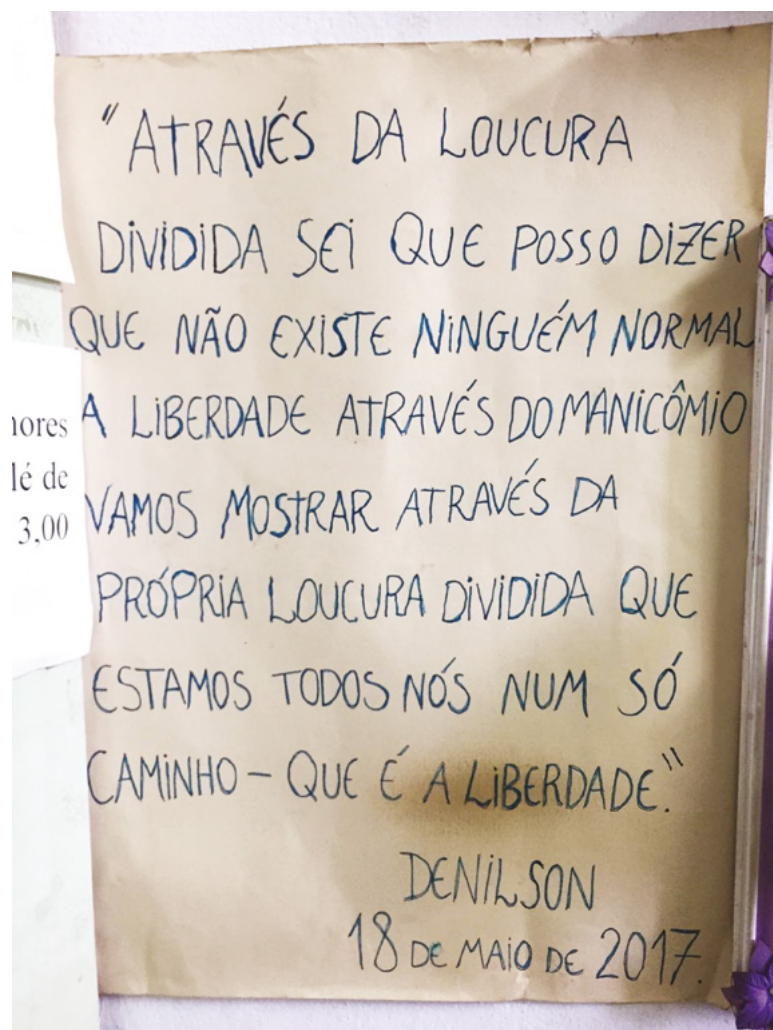 "ATRAVÉS DA LOUCURA
DIVIDIDA SEI QUE POSSO DIZER
QUE NÃO EXISTE NINGUÉM NORMAL
A LIBERDADE ATRAVÉS DO MANICÔMIO
VAMOS MOSTRAR ATRAVÉS DA
PRÓPRIA LOUCURA DIVIDIDA QUE
ESTAMOS TODOS NÓS NUM SÓ
CAMINHO – QUE É A LIBERDADE."
DENILSON
18 DE MAIO DE 2017.
hores
lé de
3,00